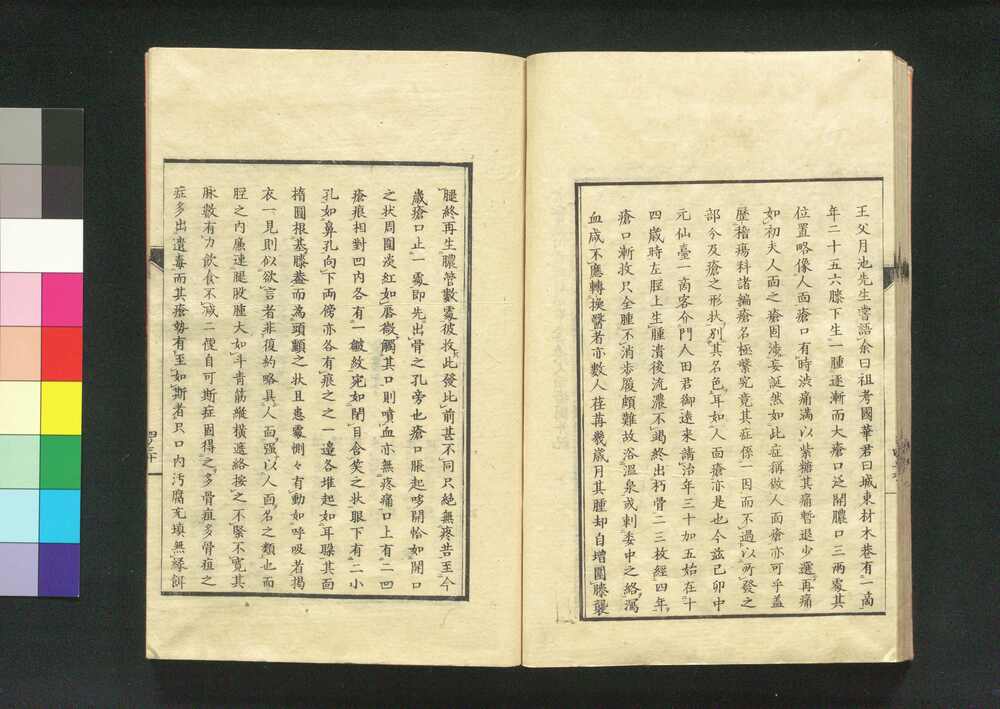 王父月池先生嘗語余曰祖考國華君曰城東材木巷有一商
年二十五六膝下生一腫逐漸而大瘡口泛開膿口三兩處其
位置略像人面瘡口有時渋痛滿以紫糖其痛暫退少選再痛
如初夫人面之瘡固渉妄誕然如此症稱做人面瘡亦可乎蓋
歷擔瘍科諸編瘡名極繁究竟其症係一因而不過以所發之
部分及瘡之形状別其名色耳如人面瘡亦是也今玆己卯中
元仙臺一商客介門人田君御遠来請治年三十加五始在十
四歲時左脛上生腫潰後流濃不竭終出朽骨二三枚經四年
瘡口漸收只全腫不消歩履頗難故浴温泉或刺委中之絡瀉
血咸不應轉換醫者亦數人荏苒幾歲月其腫却自増圍膝襲
腿終再生膿管數處彼收此發比前甚不同只絶無疼昔至今
歲瘡口止一處即先出骨之孔旁也瘡口脹起哆開恰如開口
之状周圍淡紅如唇微觸其口則噴血亦無疼痛口上有二凹
瘡痕相對凹内各有一皺紋宛如閉目含笑之状眼下有二小
孔如鼻孔向下兩傍亦各有痕之之一邉各堆起如耳朶其面
楕圓根基膝蓋而為頭顱之状且患處惻々有動如呼吸者揭
衣一見則似欲言者非復約略具人面强以人面名之類也而
脛之内廉連腿股腫大如斗青筋縱横遶絡按之不緊不寛其
脉數有力飲食不減二便自可斯症固得之多骨疽多骨疽之
症多出遺毒而其瘡勢有至如斯者只口内汚腐充填無縁餌